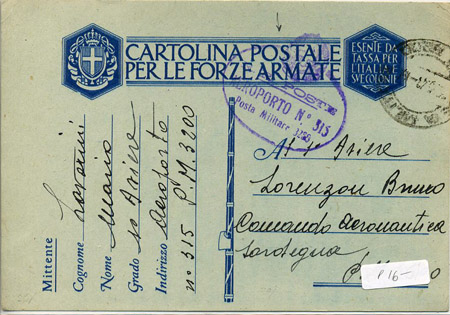 CARTOLINA POSTALE
PER LE FORZE ARMATE
ESENTE DA
TASSA PER
L'ITALIA
SVE COLONIE
AEROPORTO N° 315
Posta Militare 3200
Mittente
Cognome
Nome Mario
Grado 1° Aviere
Indirizzo Aeroporto
n° 315 P.M. 3200
Al 1° Aviere
Lorenzon Bruno
Comando Aeronautica
Sardegna
P 16-